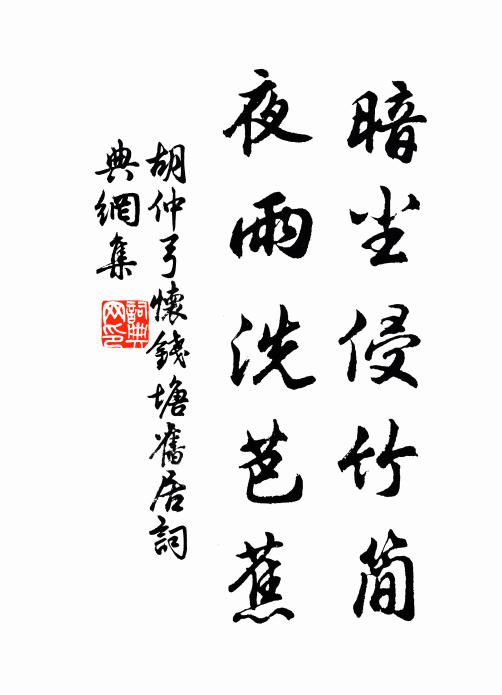 暗尘侵竹簡
夜雨洗芭蕉
胡仲弓懷錢塘舊居詞
典網集
詞典
网印